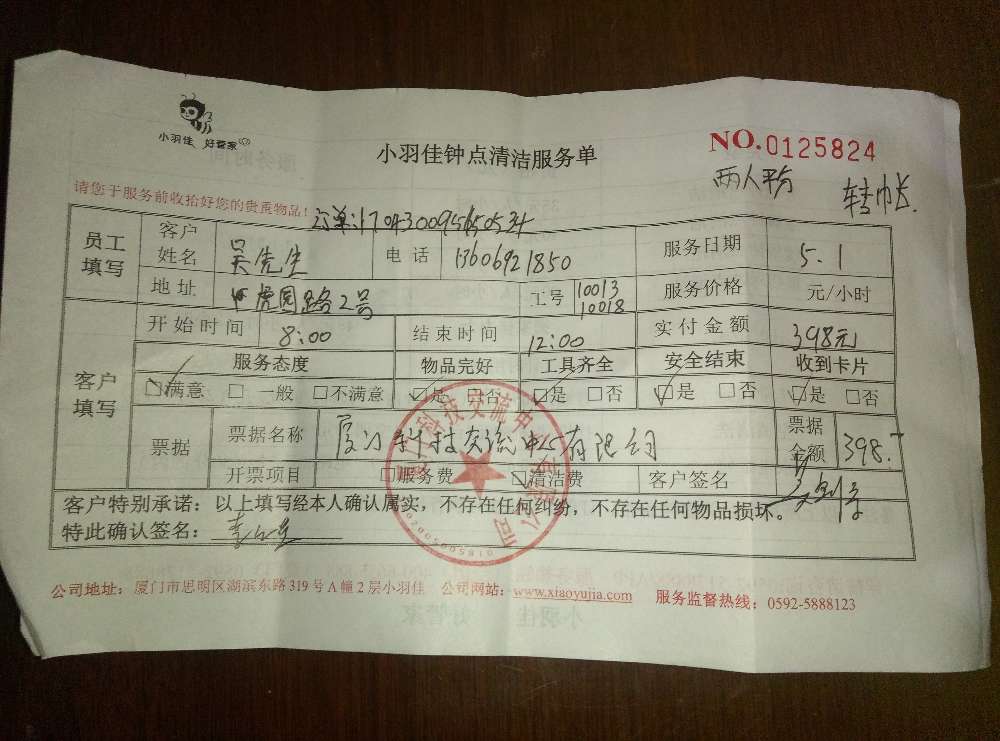 小羽佳 好管家
小羽佳钟点清洁服务单
NO.0125824
两人平分 转帐
请您于服务前收拾好您的贵重物品!
订单:
员工填写 客户姓名 吴先生 电话 13606921850 服务日期 5.1
地址 虎园路2号 工号 10013 10018 服务价格 元/小时
开始时间 8:00 结束时间 12:00 实付金额 398元
客户填写 服务态度 物品完好 工具齐全 安全结束 收到卡片
☑满意 □一般 □不满意 ☑是 □否 ☑是 □否 ☑是 □否 ☑是 □否
票据 票据名称 厦门科技交流中心有限公司 票据金额 398.-
开票项目 □服务费 ☑清洁费 客户签名
客户特别承诺：以上填写经本人确认属实，不存在任何纠纷，不存在任何物品损坏。
特此确认签名：
公司地址：厦门市思明区湖滨东路319号A幢2层小羽佳 公司网站：www.xiaoyujia.com 服务监督热线：0592-5888123